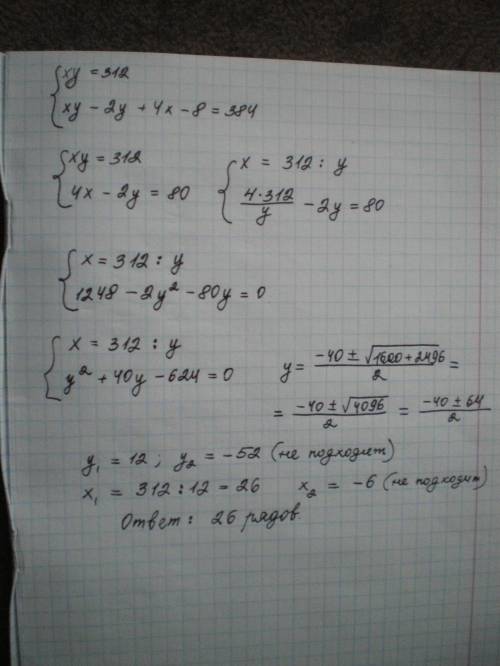 xy = 312
xy - 2y + 4x - 8 = 384
xy = 312
4x - 2y = 80
x = 312 : y
4·312/y - 2y = 80
x = 312 : y
1248 - 2y² - 80y = 0
x = 312 : y
y² + 40y - 624 = 0
y = (-40 ± √(1600 + 2496))/2 =
= (-40 ± √4096)/2 = (-40 ± 64)/2
y₁ = 12 ; y₂ = -52 (не подходит)
x₁ = 312 : 12 = 26 x₂ = -6 (не подходит)
Ответ: 26 рядов.